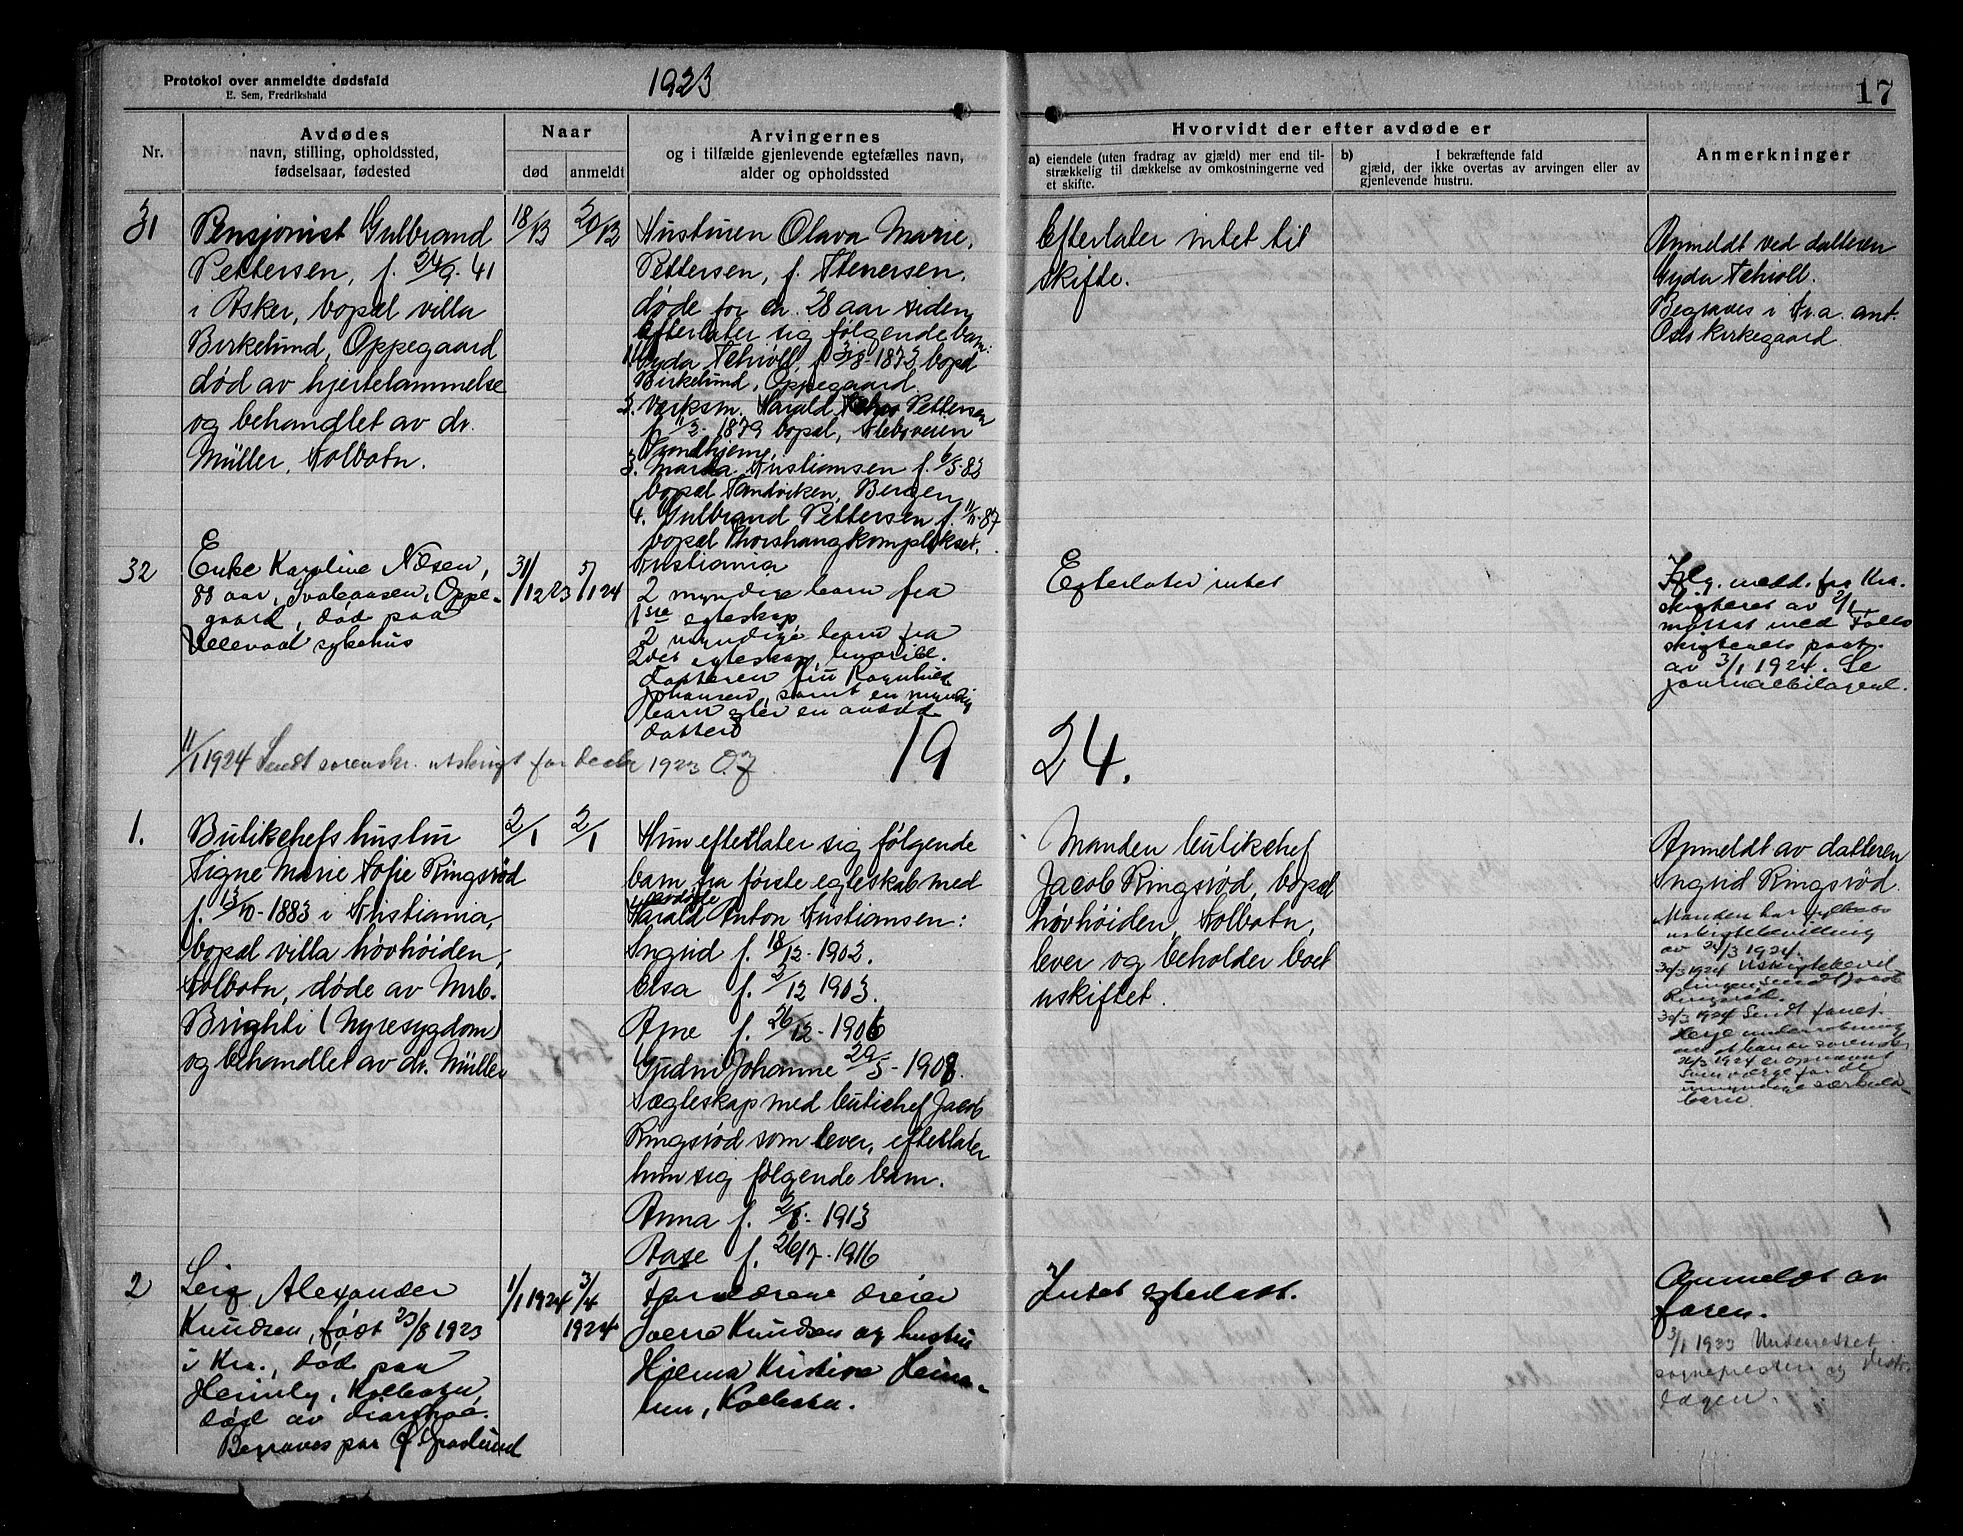 Protokol over anmeldte dødsfald
E. Sem, Fredrikshald
1923
17
Nr.
Avdødes
navn, stilling, opholdssted,
fødselsaar, fødested
Naar
død
anmeldt
Arvingernes
og i tilfælde gjenlevende egtefælles navn,
alder og opholdssted
Hvorvidt der efter avdøde er
a) eiendele (uten fradrag av gjæld) mer end til-
strækkelig til dækkelse av omkostningerne ved
et skifte.
b) I bekræftende fald
gjæld, der ikke overtas av arvingen eller av
gjenlevende hustru.
Anmerkninger
31
Pensjonist Gulbrand
Pettersen, f. 24/9-41
i Asker, bopæl villa
Birkelund, Oppegaard
død av hjertelammelse
og behandlet av dr.
Müller, Kolbotn.
18/12
20/12
Hustruen Olava Marie
Pettersen, f. Stenersen,
døde for ca. 28 aar siden
Efterlater sig følgende barn:
Gyda f. 1873 bopæl
Birkelund, Oppegaard
2. Verksm. Harald Pettersen
f. 11/2-1879 bopæl,
3. Kristiansen f. 6/5-83
bopæl Sandviken, Bergen
4. Gulbrand Pettersen f. 11/11-87
bopæl Thorshaugkomplekset,
Kristiania
Efterlater intet til
skifte.
Anmeldt ved datteren
Gyda
Begraves i Kr.a. ant.
Oslo kirkegaard
32
Enke Karoline Næsen,
88 aar, Svaleaasen, Oppe-
gaard, død paa
Ullevaal sykehus
31/12 23
5/1 24
2 myndige barn fra
1ste egteskap,
2 myndige barn fra
2det egteskap, hvorav
datteren fru Ragnhild
Johansen, samt en myndig
barn efter en avdød
datter
Efterlater intet
Iflg. medd. fra Kra.
skifteret av 2/1
motat med Follo
skifterets paat.
av 3/1 1924. Se
journalbilagene.
11/1 1924 Sendt sorenskr. utskrift for decbr 1923 O.J.
19 24.
1.
Butikchefs hustru
Signe Marie Sofie Ringsrød
f. 13/10-1883 i Kristiania,
bopæl villa Høvhøiden,
Kolbotn, døde av Mrb.
Brighti (Nyresygdom)
og behandlet av dr. Müller
2/1
2/1
Hun efterlater sig følgende
barn fra første egteskab med
avdøde
Harald Anton Kristiansen:
Ingrid f. 18/12-1902.
Elsa f. 2/12 1903.
Arne f. 26/12-1906
Gudrun Johanne 29/5-1908.
I egteskap med butikchef Jacob
Ringsrød som lever, efterlater
hun sig følgende barn.
Anna f. 2/8-1913
Aase f. 26/7-1916
Manden butikchef
Jacob Ringsrød, bopæl
Høvhøiden, Kolbotn,
lever og beholder boet
uskiftet.
Anmeldt av datteren
Ingrid Ringsrød.
Manden har
uskiftebevilling
av 24/3 1924.
30/3 1924 Uskiftebevil-
lingen sendt Jacob
Ringsrød.
30/3 1924 Sendt
Herje underretning
om at han av sorenskr.
26/3 1924 er opnævnt
som værge for de
umyndige særkuld-
barn.
2
Leif Alexander
Knudsen, født 23/8 1923
i Kra., død paa
Heimly, Kolbotn,
død av
Begraves paa
1/1 1924
3/4
1924
Forældrene dreier
Sverre Knudsen og hustru
Hjelma Kristine
Kolbotn.
Intet efterlatt.
Anmeldt av
faren.
3/1 1923 Underrettet
sogneprsten og distr.
lægen.